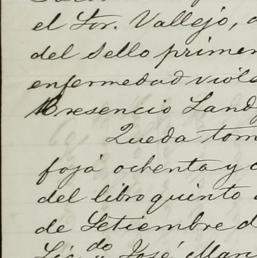 el Sor. Vallejo,
del Sello primer
enfermedad viol
Cresencio Land
Queda tom
foja ochenta y
del libro quinto
de Setiembre d
Lic.do José Mar